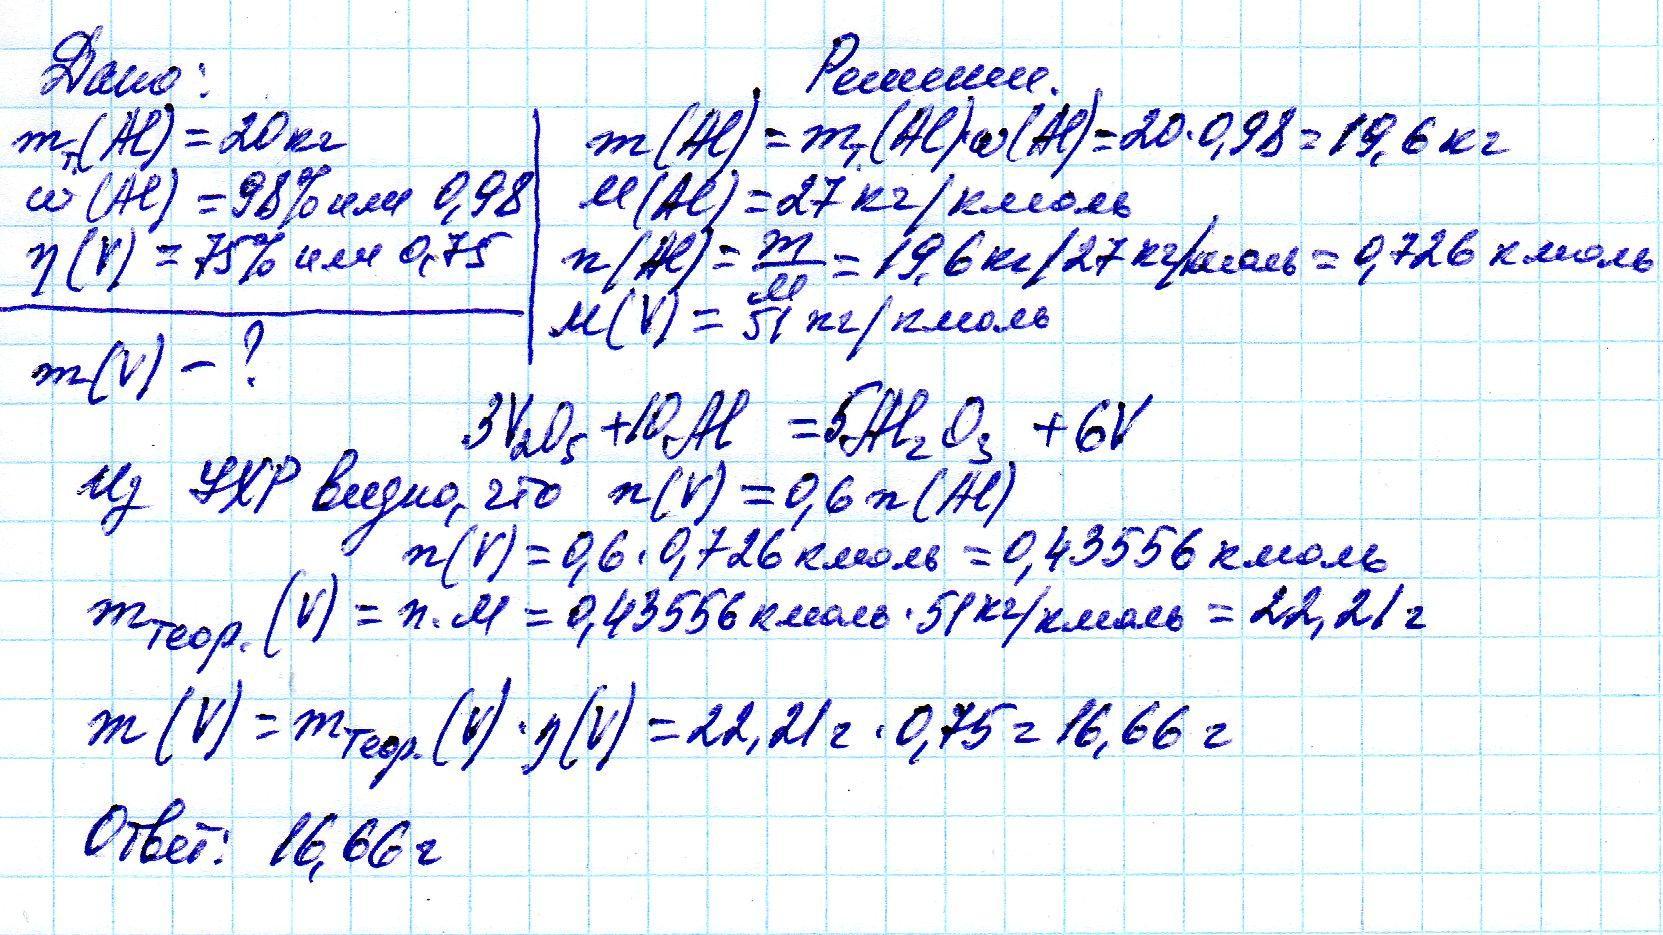 Дано:
Решение.
m_т(Al) = 20 кг
ω(Al) = 98% или 0,98
η(V) = 75% или 0,75
m(V) - ?
m(Al) = m_т(Al)·ω(Al) = 20·0,98 = 19,6 кг
M(Al) = 27 кг/кмоль
n(Al) = m/M = 19,6 кг/27 кг/кмоль = 0,726 кмоль
M(V) = 51 кг/кмоль
3V₂O₅ + 10Al = 5Al₂O₃ + 6V
Из УХР видно, что n(V) = 0,6 n(Al)
n(V) = 0,6·0,726 кмоль = 0,43556 кмоль
m_теор.(V) = n·M = 0,43556 кмоль·51 кг/кмоль = 22,21 г
m(V) = m_теор.(V)·η(V) = 22,21 г·0,75 = 16,66 г
Ответ: 16,66 г